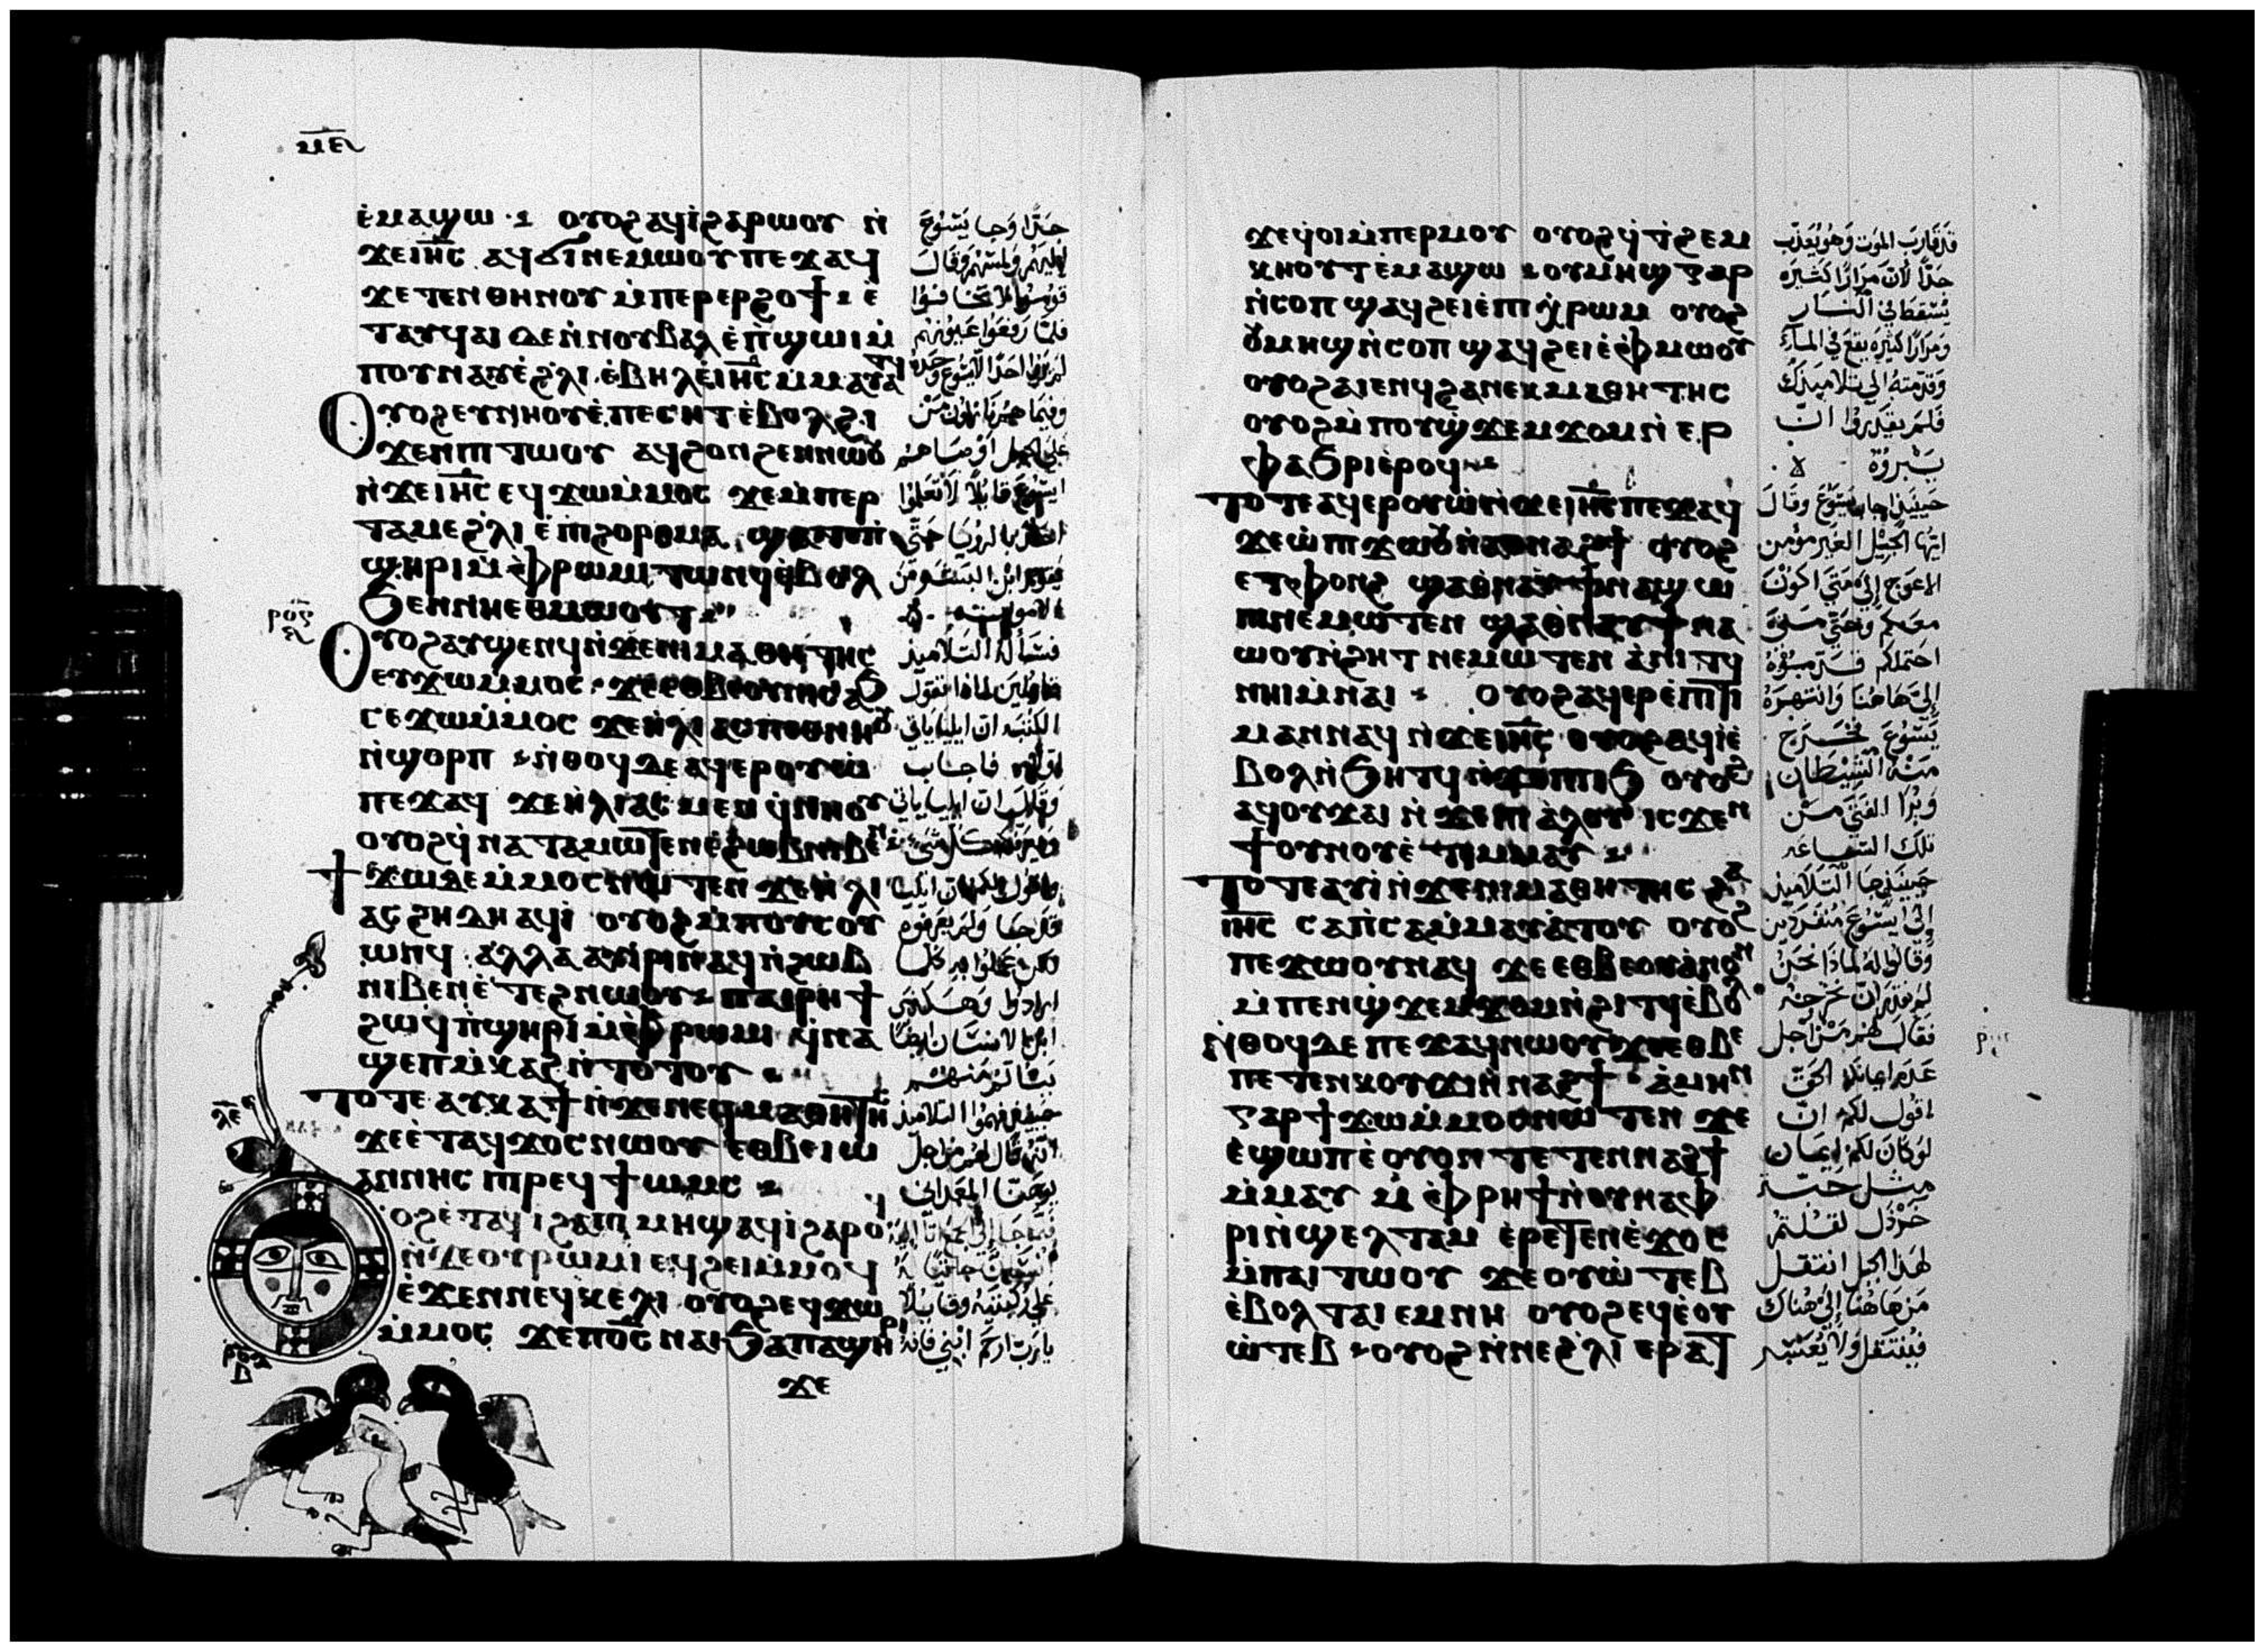 ⲙⲉ
ⲉ̀ⲙⲁϣⲱ ⲟⲩⲟϩ ⲁϥⲓ̀ϩⲁⲣⲱⲟⲩ ⲛ̀
ϫⲉⲓⲏ̅ⲥ ⲁϥϭⲓⲛⲉⲙⲱⲟⲩ ⲡⲉϫⲁϥ
ϫⲉ ⲧⲉⲛⲑⲏⲛⲟⲩ ⲙ̀ⲡⲉⲣⲉⲣϩⲟϯ ⲉ̀
ⲧⲁⲩϥⲁⲓ ⲇⲉ ⲛ̀ⲛⲟⲩⲃⲁⲗ ⲉ̀ⲡ̀ϣⲱⲓ ⲙ̀
ⲡⲟⲩⲛⲁⲩ ⲉ̀ϩ̀ⲗⲓ ⲉ̀ⲃⲏⲗ ⲉ̀ⲓⲏ̅ⲥ ⲙ̀ⲙⲁⲩⲁⲧϥ
Ⲟⲩⲟϩ ⲉⲩⲛⲏⲟⲩ ⲉ̀ⲡⲉⲥⲏⲧ ⲉ̀ⲃⲟⲗϩⲓ
ϫⲉⲛⲡⲓⲧⲱⲟⲩ ⲁϥϩⲟⲛϩⲉⲛⲛⲱⲟⲩ
ⲛ̀ϫⲉⲓⲏ̅ⲥ ⲉϥϫⲱⲙ̀ⲙⲟⲥ ϫⲉⲙ̀ⲡⲉⲣ
ⲧⲁⲙⲉϩ̀ⲗⲓ ⲉ̀ⲡⲓϩⲟⲣⲟⲙⲁ ϣⲁⲧⲉⲡ̀
ϣⲏⲣⲓ ⲙ̀ⲫ̀ⲣⲱⲙⲓ ⲧⲱⲛϥ ⲉ̀ⲃⲟⲗ
ϧⲉⲛⲛⲏⲉⲑⲙⲱⲟⲩⲧ
Ⲟⲩⲟϩ ⲁⲩϣⲉⲛϥ ⲛ̀ϫⲉⲛⲓⲙⲁⲑⲏⲧⲏⲥ
ⲉⲩϫⲱⲙ̀ⲙⲟⲥ ϫⲉⲉⲑⲃⲉⲟⲩⲛⲓⲥⲁϧ
ⲥⲉϫⲱⲙ̀ⲙⲟⲥ ϫⲉⲏ̀ⲗⲓⲁⲥ ⲡⲉⲑⲛⲏⲟⲩ
ⲛ̀ϣⲟⲣⲡ ⲛ̀ⲑⲟϥ ⲇⲉ ⲁϥⲉⲣⲟⲩⲱ̀
ⲡⲉϫⲁϥ ϫⲉⲏ̀ⲗⲓⲁⲥ ⲙⲉⲛ ϥ̀ⲛⲏⲟⲩ
ⲟⲩⲟϩ ϥ̀ⲛⲁⲧⲁⲙⲱⲧⲉⲛ ⲉ̀ϩⲱⲃ ⲛⲓⲃⲉⲛ
ϯϫⲱ ⲇⲉ ⲙ̀ⲙⲟⲥ ⲛⲱⲧⲉⲛ ϫⲉⲏ̀ⲗⲓ
ⲁⲥ ϩⲏⲇⲏ ⲁϥⲓ̀ ⲟⲩⲟϩ ⲙ̀ⲡⲟⲩⲥⲟⲩ
ⲱⲛϥ ⲁⲗⲗⲁ ⲁⲩⲓⲣⲓ ⲛⲁϥ ⲛ̀ϩⲱⲃ
ⲛⲓⲃⲉⲛ ⲉ̀ⲧⲉϩⲛⲱⲟⲩ ⲡⲁⲓⲣⲏϯ
ϩⲱϥ ⲡ̀ϣⲏⲣⲓ ⲙ̀ⲫ̀ⲣⲱⲙⲓ ϥ̀ⲛⲁ
ϣⲉⲡⲙ̀ⲕⲁϩ ⲛ̀ⲧⲟⲧⲟⲩ
Ⲧⲟⲧⲉ ⲁⲩⲕⲁϯ ⲛ̀ϫⲉⲛⲉϥⲙⲁⲑⲏⲧⲏⲥ
ϫⲉⲉ̀ⲧⲁϥϫⲟⲥ ⲛⲱⲟⲩ ⲉⲑⲃⲉ ⲓⲱ
ⲁⲛⲛⲏⲥ ⲡⲓⲣⲉϥϯⲱⲙⲥ
ⲟϩ ⲉ̀ⲧⲁϥⲓ̀ ϩⲁⲡⲓⲙⲏϣ ⲁϥⲓ̀ ϩⲁⲣⲟϥ
ⲛ̀ϫⲉⲟⲩⲣⲱⲙⲓ ⲉϥϩⲉⲓⲙ̀ⲙⲟϥ
ⲉ̀ϫⲉⲛⲛⲉϥⲕⲉⲗⲓ ⲟⲩⲟϩ ⲉϥϫⲱ
ⲙ̀ⲙⲟⲥ ϫⲉⲡⲟ̅ⲥ ⲛⲁⲓ ϧⲁⲡⲁϣⲏⲣⲓ
ϫⲉ
جدًا وجا يسوع
اليهم ولمسهم وقال
قوموا لا تخافوا
فلما رفعوا عيونهم
لم يروا احدًا الا يسوع وحده
وفيما هم نازلون من
على الجبل اوصاهم
يسوع قايلًا لا تعلموا
احدًا بالرويا حتى
يقوم ابن البشر من
الاموات
فسأله التلاميذ
قايلين لماذا تقول
الكتبه ان ايليا ياتي
اولًا فاجاب
وقال ان ايليا ياتي
واقول لكم ان ايليا
قد جا ولم يعرفوه
لكن عملوا به كل
ارادوا وهكذى
ابن الانسان ايضا
حينئذ فهموا التلاميذ
انه قال لهم من اجل
يوحنا المعمدانى
على ركبتيه وقايلا
يا رب ارحم ابني فانه
ϫⲉϥ̀ⲟⲓ ⲙ̀ⲡⲉⲣⲙⲟⲩ ⲟⲩⲟϩ ϥ̀ϯϩⲉⲙ
ⲕⲏⲟⲩⲧ ⲉ̀ⲙⲁϣⲱ ⲟⲩⲙⲏϣ ⲅⲁⲣ
ⲛ̀ⲥⲟⲡ ϣⲁϥϩⲉⲓ ⲉ̀ⲡⲓⲭ̀ⲣⲱⲙ ⲟⲩⲟϩ
ⲟⲩⲙⲏϣ ⲛ̀ⲥⲟⲡ ϣⲁϥϩⲉⲓ ⲉ̀ⲫ̀ⲙⲱⲟⲩ
ⲟⲩⲟϩ ⲁⲓⲉⲛϥ ϩⲁⲛⲉⲕⲙⲁⲑⲏⲧⲏⲥ
ⲟⲩⲟϩ ⲙ̀ⲡⲟⲩϣ̀ϫⲉⲙϫⲟⲙ ⲛ̀ⲉⲣ
ⲫⲁϧⲣⲓ ⲉ̀ⲣⲟϥ
Ⲧⲟⲧⲉ ⲁϥⲉⲣⲟⲩⲱ̀ ⲛ̀ϫⲉⲓⲏ̅ⲥ ⲡⲉϫⲁϥ
ϫⲉⲱ̀ ⲡⲓϫⲱⲟⲩ ⲛ̀ⲁⲑⲛⲁϩϯ ⲟⲩⲟϩ
ⲉⲧⲫⲟⲛϩ ϣⲁⲑⲛⲁⲩ ϯⲛⲁϣⲱ
ⲡⲓ ⲛⲉⲙⲱⲧⲉⲛ ϣⲁⲑⲛⲁⲩ ϯⲛⲁ
ⲱⲟⲩⲛ̀ϩⲏⲧ ⲛⲉⲙⲱⲧⲉⲛ ⲁ̀ⲛⲓⲧϥ
ⲛⲏⲓ ⲙ̀ⲛⲁⲓ ⲟⲩⲟϩ ⲁϥⲉⲣⲉ̀ⲡⲓⲧⲓ
ⲙⲁⲛ ⲛⲁϥ ⲛ̀ϫⲉⲓⲏ̅ⲥ ⲟⲩⲟϩ ⲁϥⲓ̀ ⲉ̀
ⲃⲟⲗ ⲛ̀ϧⲏⲧϥ ⲛ̀ϫⲉⲡⲓⲓϧ ⲟⲩⲟϩ
ⲁϥⲟⲩϫⲁⲓ ⲛ̀ϫⲉⲡⲓⲁ̀ⲗⲟⲩ ⲓⲥϫⲉⲛ
ϯⲟⲩⲛⲟⲩ ⲉ̀ⲧⲉⲙⲙⲁⲩ
Ⲧⲟⲧⲉ ⲁⲩⲓ̀ ⲛ̀ϫⲉⲛⲓⲙⲁⲑⲏⲧⲏⲥ ϩⲁ
ⲓⲏ̅ⲥ ⲥⲁⲡ̀ⲥⲁ ⲙ̀ⲙⲁⲩⲁ̀ⲧⲟⲩ ⲟⲩⲟϩ
ⲡⲉϫⲱⲟⲩ ⲛⲁϥ ϫⲉⲉⲑⲃⲉⲟⲩ ⲁ̀ⲛⲟⲛ
ⲙ̀ⲡⲉⲛϣ̀ϫⲉⲙϫⲟⲙ ⲛ̀ϩⲓⲧϥ ⲉ̀ⲃⲟⲗ
ⲛ̀ⲑⲟϥ ⲇⲉ ⲡⲉϫⲁϥ ⲛⲱⲟⲩ ϫⲉⲉⲑⲃⲉ
ⲡⲉⲧⲉⲛⲕⲟⲩϫⲓ ⲛ̀ⲛⲁϩϯ ⲁ̀ⲙⲏⲛ
ⲅⲁⲣ ϯϫⲱⲙ̀ⲙⲟⲥ ⲛⲱⲧⲉⲛ ϫⲉ
ⲉ̀ϣⲱⲡ ⲉ̀ⲟⲩⲟⲛ ⲧⲉⲧⲉⲛⲛⲁϩϯ
ⲙ̀ⲙⲁⲩ ⲙ̀ⲫ̀ⲣⲏϯ ⲛ̀ⲟⲩⲛⲁⲫ
ⲣⲓ ⲛ̀ϣⲉⲗⲧⲁⲙ ⲉ̀ⲣⲉⲧⲉⲛⲉ̀ϫⲟⲥ
ⲙ̀ⲡⲁⲓⲧⲱⲟⲩ ϫⲉⲟⲩⲱ̀ⲧⲉⲃ
ⲉ̀ⲃⲟⲗ ⲧⲁⲓ ⲉⲙⲛⲏ ⲟⲩⲟϩ ⲉϥⲉ̀ⲟⲩ
ⲱ̀ⲧⲉⲃ ⲟⲩⲟϩ ⲛ̀ⲛⲉϩ̀ⲗⲓ ⲉⲣⲁⲧ
قد قارب الموت وهو يعذب
جدًا لان مرارًا كثيره
يسقط في النار
ومرارًا كثيره يقع في الماء
وقدمته الي تلاميذك
فلم يقدروا ان
يبروه
حينيذ اجاب يسوع وقال
ايها الجيل الغير مؤمن
الاعوج الى متى اكون
معكم وحتى متى
احتملكم قدموه
إلىّ هاهنا وانتهره
يسوع فخرج
منه الشيطان
وبرا الفتى من
تلك الساعه
حينيذ جا التلاميذ
إلى يسوع منفردين
وقالوا له لماذا نحن
لم نقدر ان نخرجه
فقال لهم من اجل
عدم ايمانكم الحق
اقول لكم ان
لو كان لكم ايمان
مثل حبة
خردل لقلتم
لهذا الجبل انتقل
من هاهنا إلى هناك
فينتقل ولا يعسر